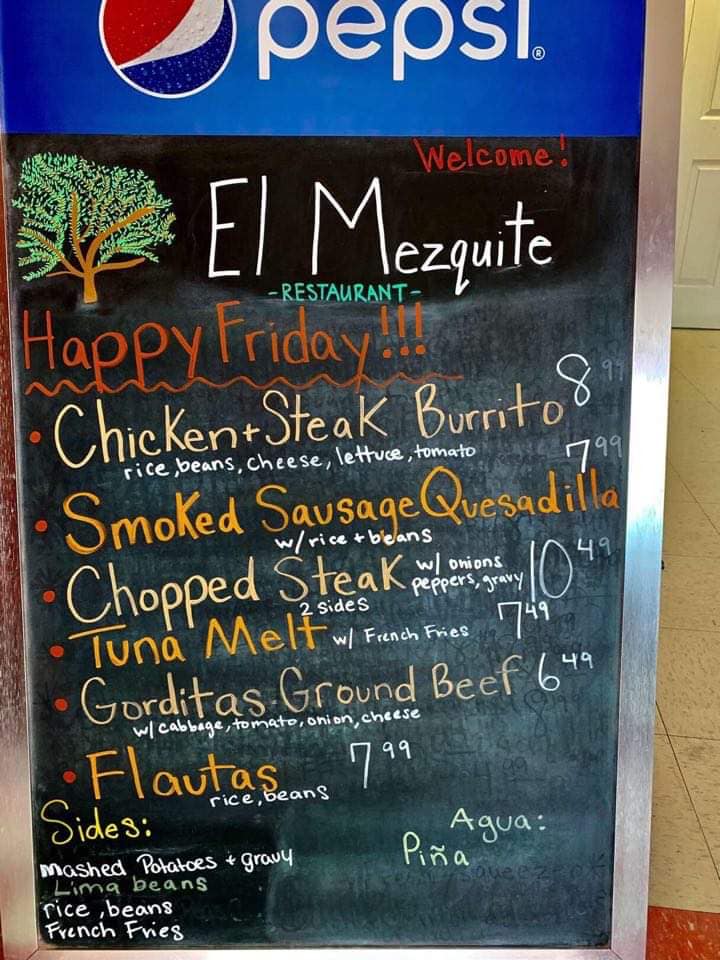 pepsi®
Welcome!
El Mezquite
-RESTAURANT-
Happy Friday!!!
• Chicken + Steak Burrito 8 99
rice, beans, cheese, lettuce, tomato
• Smoked Sausage Quesadilla 7 99
w/ rice + beans
• Chopped Steak w/ onions peppers, gravy 10 49
2 sides
• Tuna Melt w/ French Fries 7 49
• Gorditas-Ground Beef 6 49
w/ cabbage, tomato, onion, cheese
• Flautas 7 99
rice, beans
Sides:
mashed Potatoes + gravy
Lima beans
rice, beans
French Fries
Agua:
Piña